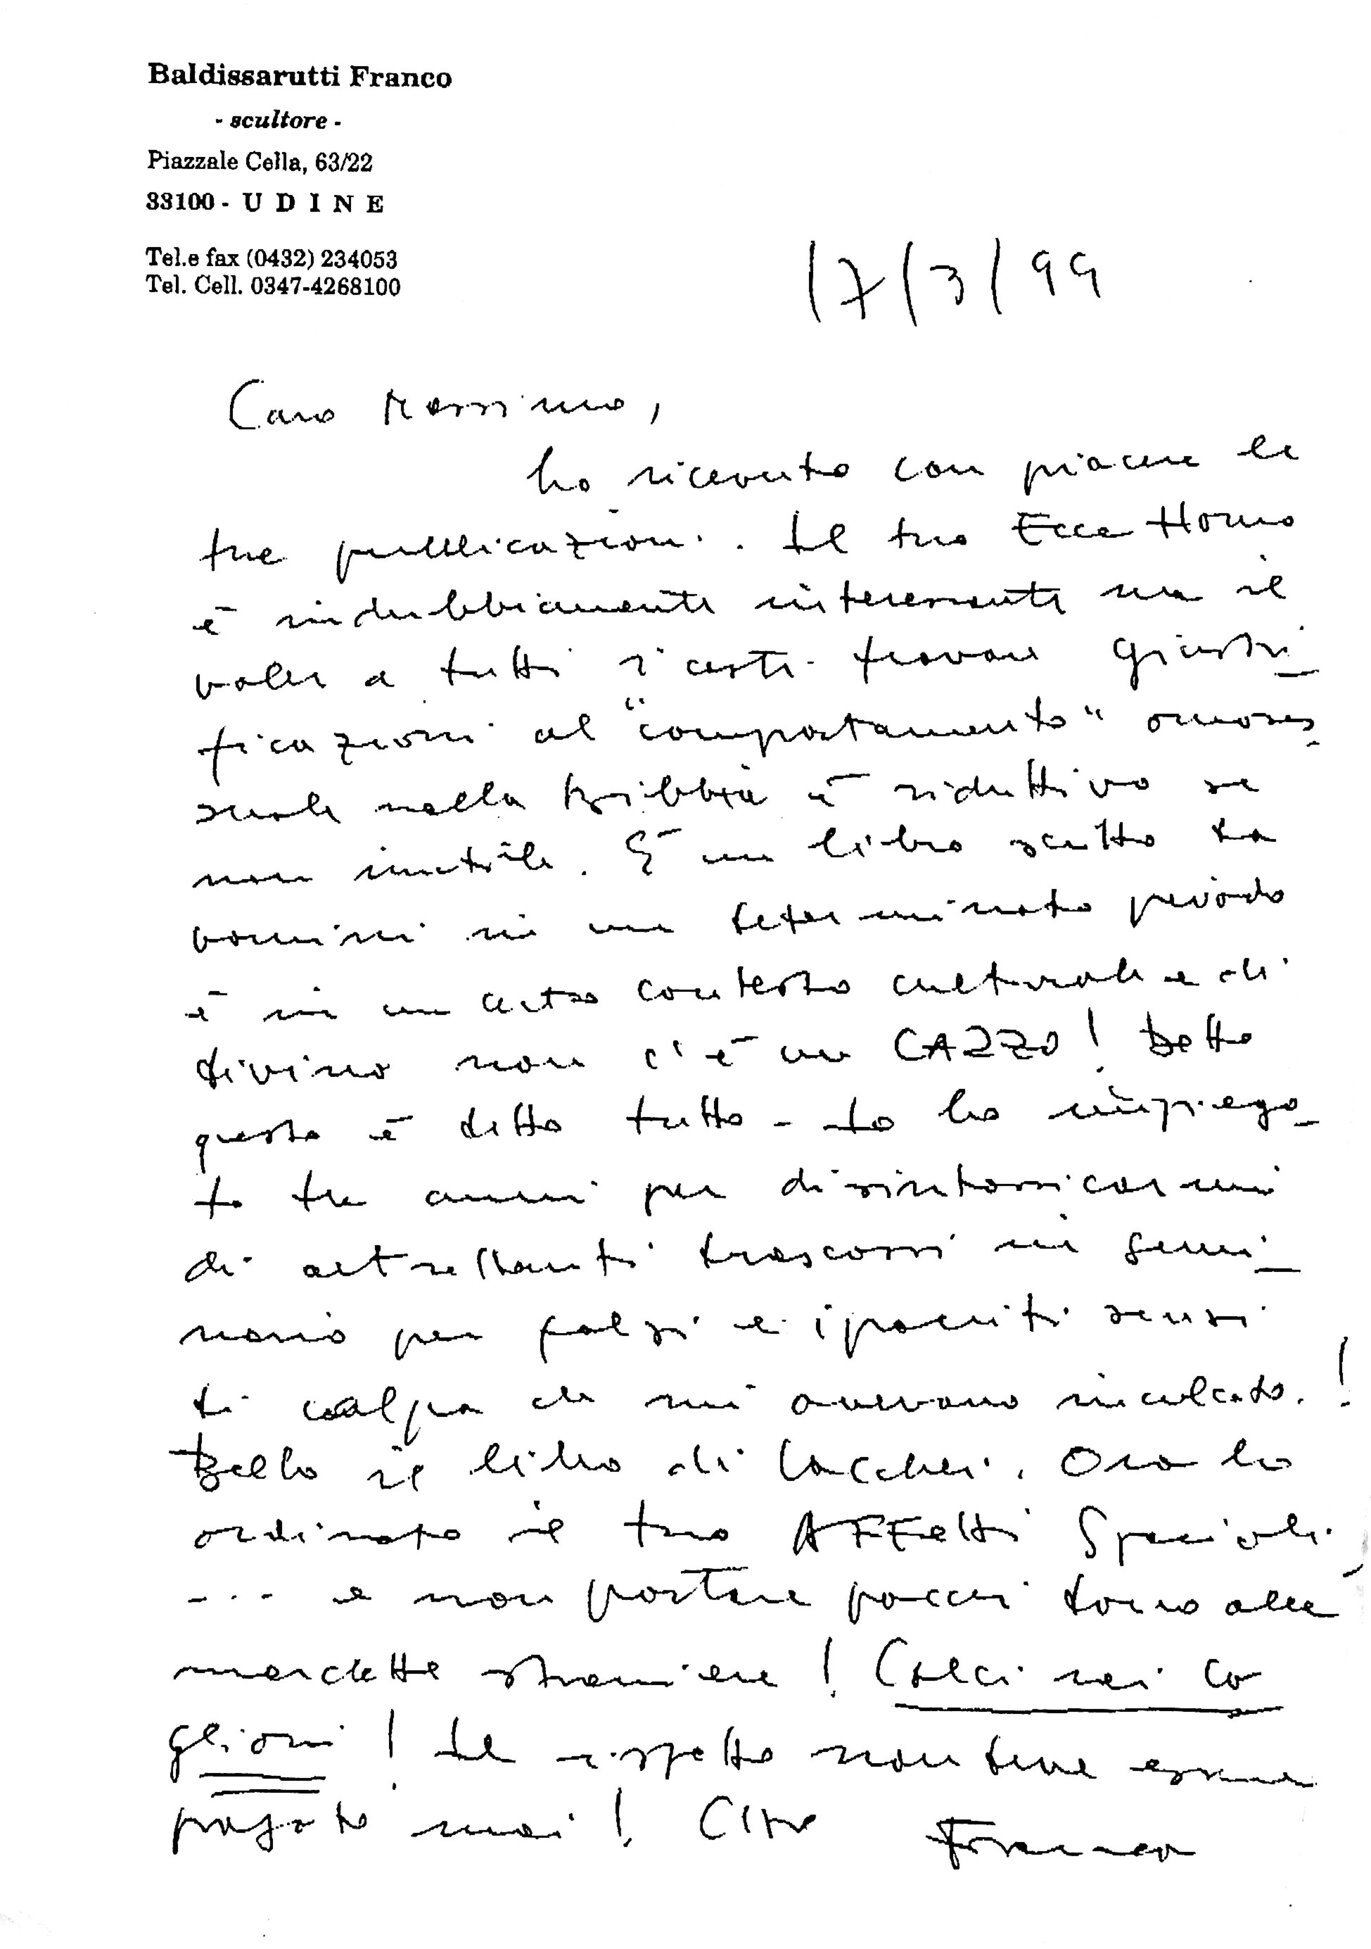 Baldissarutti Franco
- scultore -
Piazzale Cella, 63/22
33100 - U D I N E
Tel.e fax (0432) 234053
Tel. Cell. 0347-4268100
17/3/99
Caro Massimo,
ho ricevuto con piacere le
tue pubblicazioni. Il tuo Ecce Homo
è indubbiamente interessante ma il
voler a tutti i costi trovare giusti-
ficazioni al "comportamento" omoses-
suale nella Bibbia è riduttivo se
non inutile. È un libro scritto da
uomini in un determinato periodo
e in un certo contesto culturale e di
divino non c'è un CAZZO! Detto
questo è detto tutto - Io ho impiega-
to tre anni per disintossicarmi
di altrettanti trascorsi in semi-
nario per falsi e ipocriti sensi
di colpa che mi avevano inculcato.!
Bello il libro di Cocchei. Ora ho
ordinato il tuo AFFetti Speciali,
... e non portare pacchi dono alle
marchette straniere! Calci nei co
glioni! Il rispetto non deve essere
pagato mai! Ciao Franco